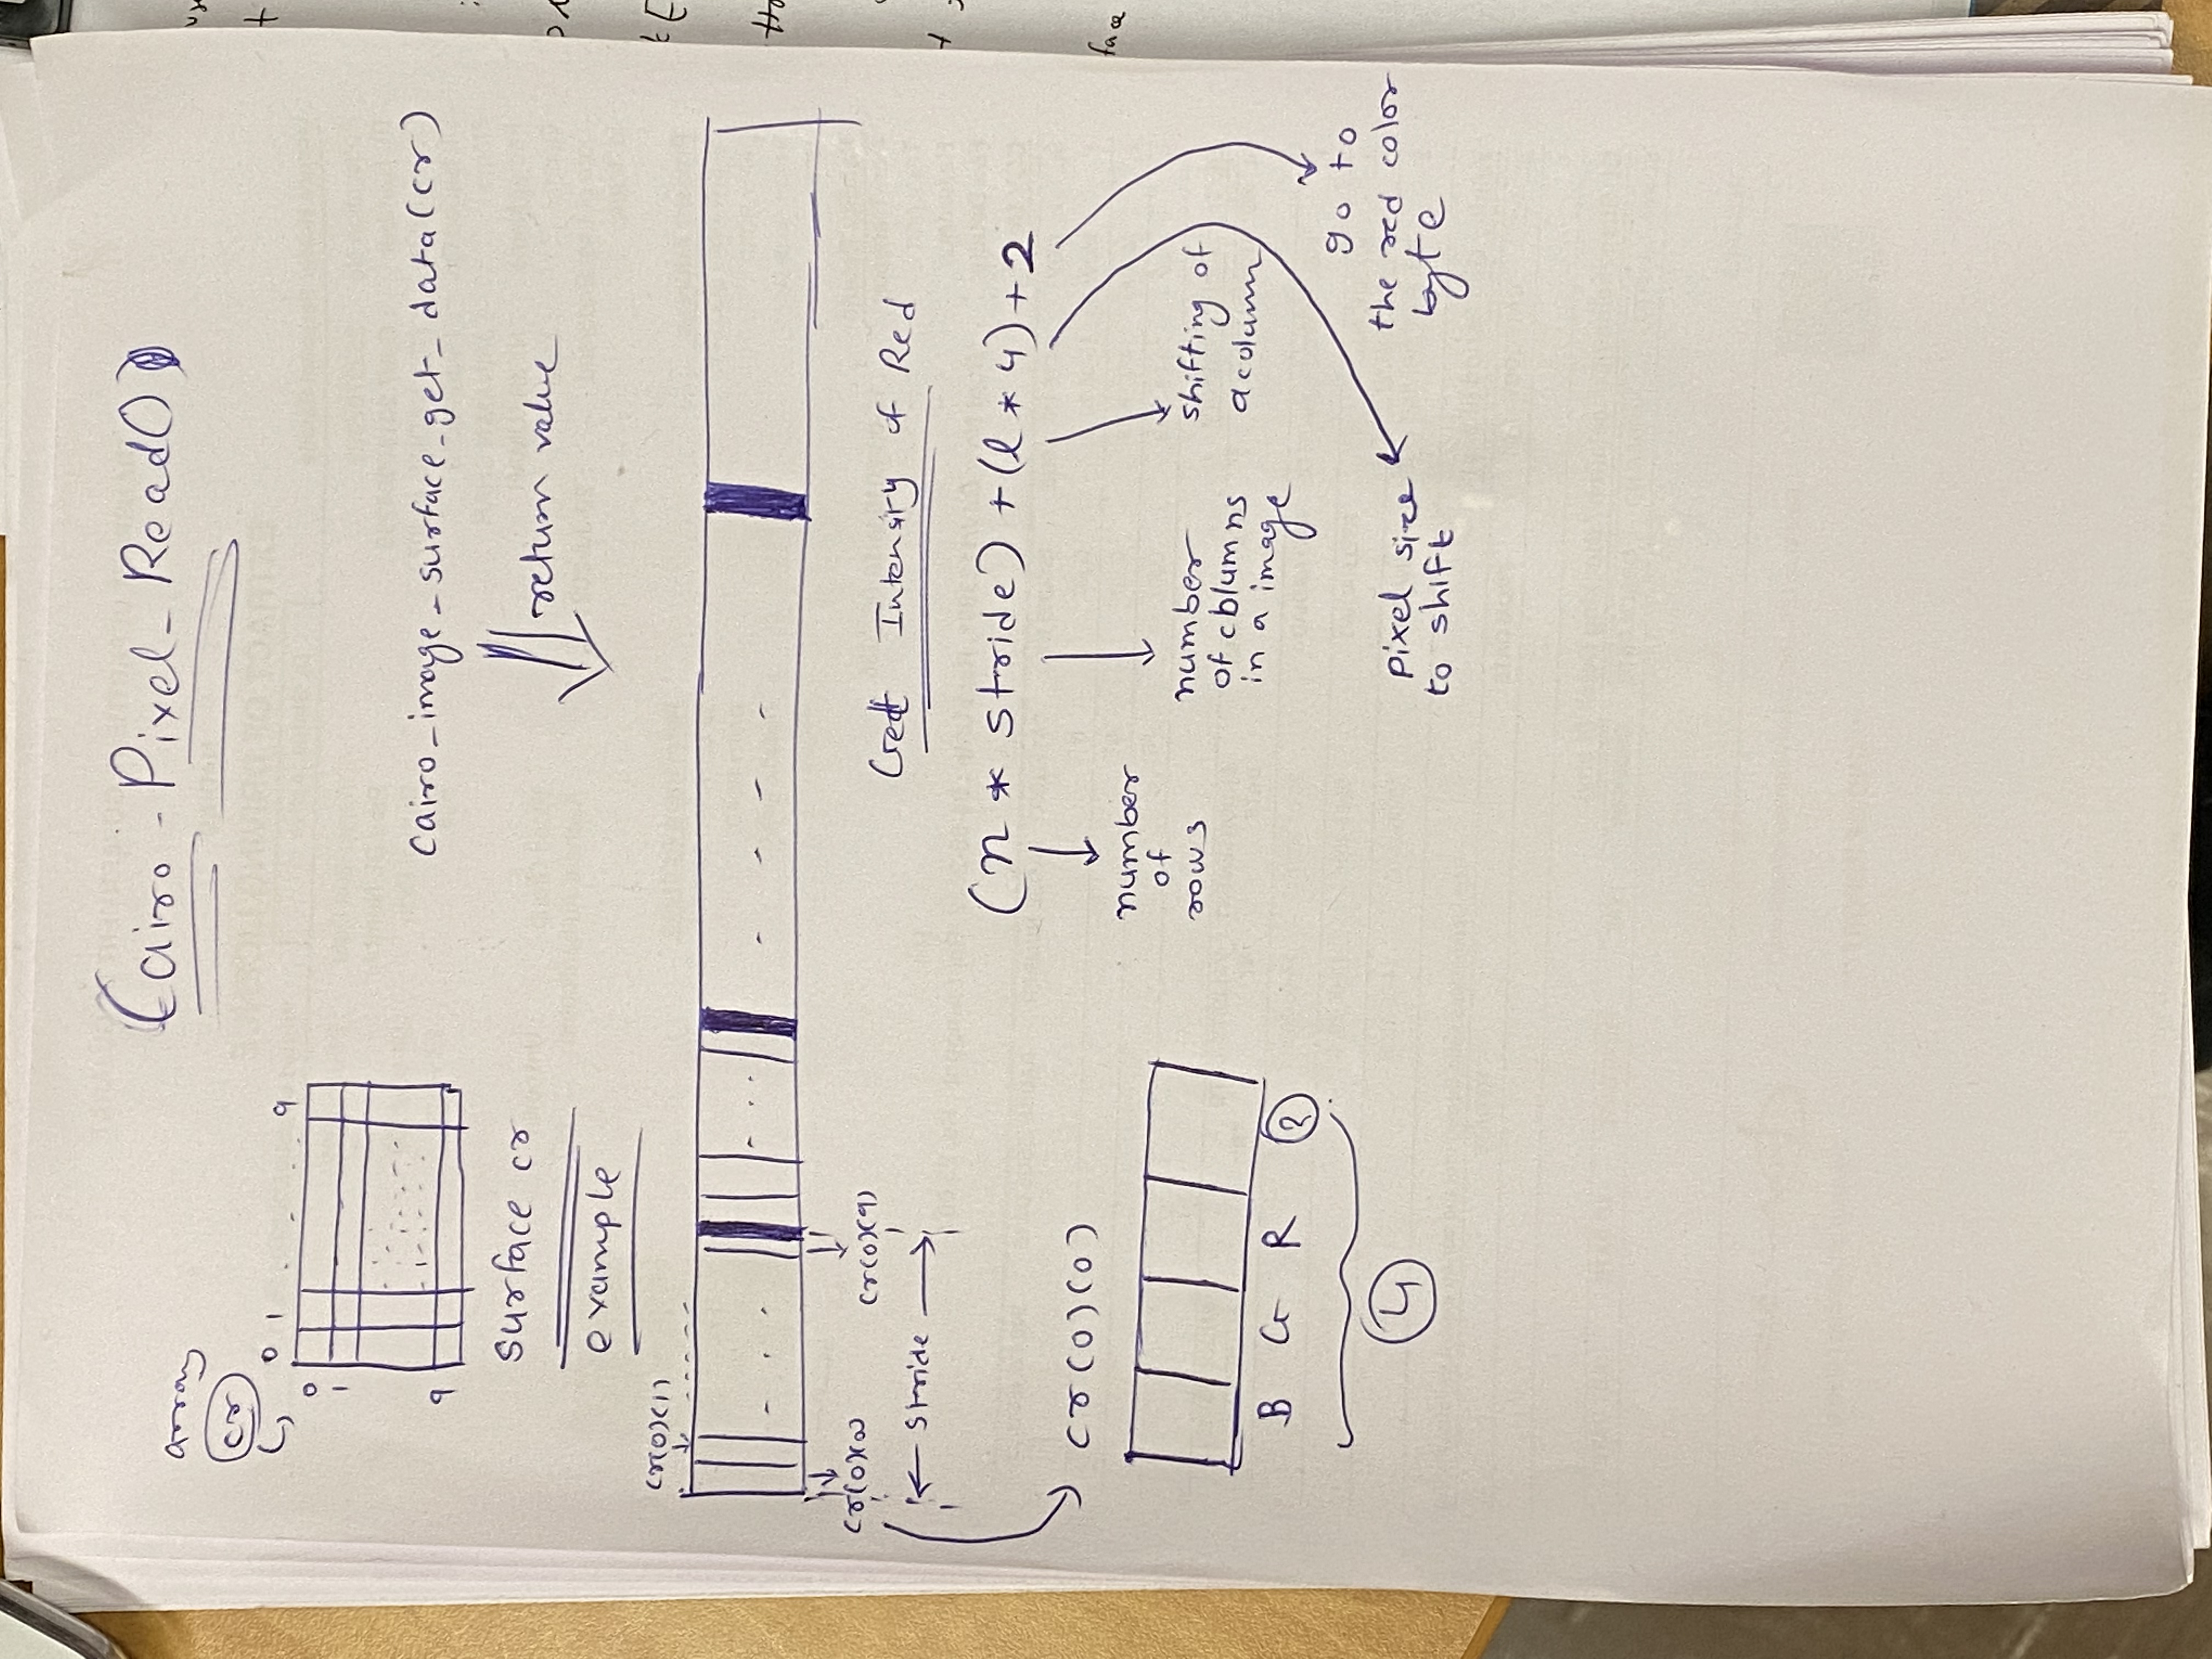 Cairo-Pixel-Read()
array
cr
0 1 9
0
1
9
surface cr
example
cairo_image_surface_get_data(cr)
return value
cr(0)(1)
cr(0)(0)
cr(0)(9)
stride
Get Intensity of Red
(n * stride) + (l * 4) + 2
number
of
rows
number
of columns
in a image
shifting of
a column
pixel size
to shift
go to
the red color
byte
cr(0)(0)
B G R ?
4
face